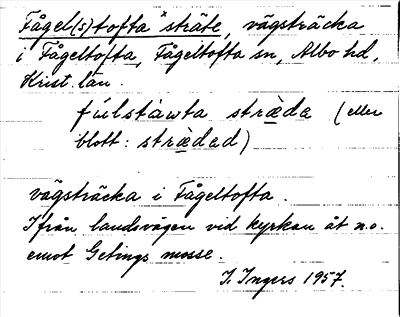 Fågel(s)tofta *sträte, vägsträcka
i Fågeltofta, Fågeltofta sn, Albo hd,
Krist. län.
fúlstàwta stræ̀da (eller
blott: stræ̀dad)
vägsträcka i Fågeltofta.
Ifrån landsvägen vid kyrkan åt n.o.
emot Getings mosse.
I. Ingers 1957.